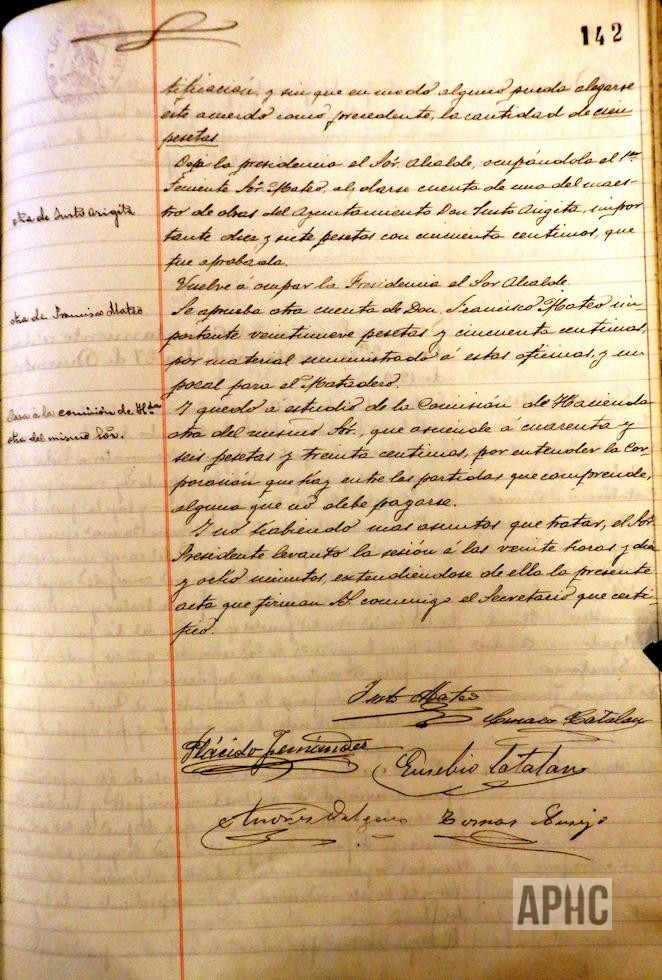 142
tificación, y sin que en modo alguno pueda alegarse
este acuerdo como precedente, la cantidad de cien
pesetas
Deja la presidencia el Sór. Alcalde, ocupándola el 1er
Teniente Sór. Mateo, al darse cuenta de una del maes-
otra de Justo Arigita
tro de obras del Ayuntamiento Don Justo Arigita, impor-
tante diez y siete pesetas con cincuenta centimos, que
fue aprobada.
Vuelve a ocupar la Presidencia el Sor Alcalde.
otra de Francisco Mateo
Se aprueba otra cuenta de Don Francisco Mateo im-
portante veintinueve pesetas y cincuenta centimos,
por material suministrado á estas oficinas, y un
pozal para el Matadero.
Pasa á la comisión de Hda
otra del mismo Sór.
Y quedó a estudio de la Comisión de Hacienda
otra del mismo Sór, que asciende a cuarenta y
seis pesetas y treinta centimos, por entender la Cor-
poración que hay entre las partidas que comprende,
alguna que no debe pagarse.
Y no habiendo mas asuntos que tratar, el Sór.
Presidente levantó la sesión á las veinte horas y diez
y ocho minutos, extendiendose de ella la presente
acta que firman S.S. conmigo el Secretario que certi-
fico.
Justo Mateo
Catalan
Plácido Fernández
Eusebio Catalan
Andrés
Tomas
APHC